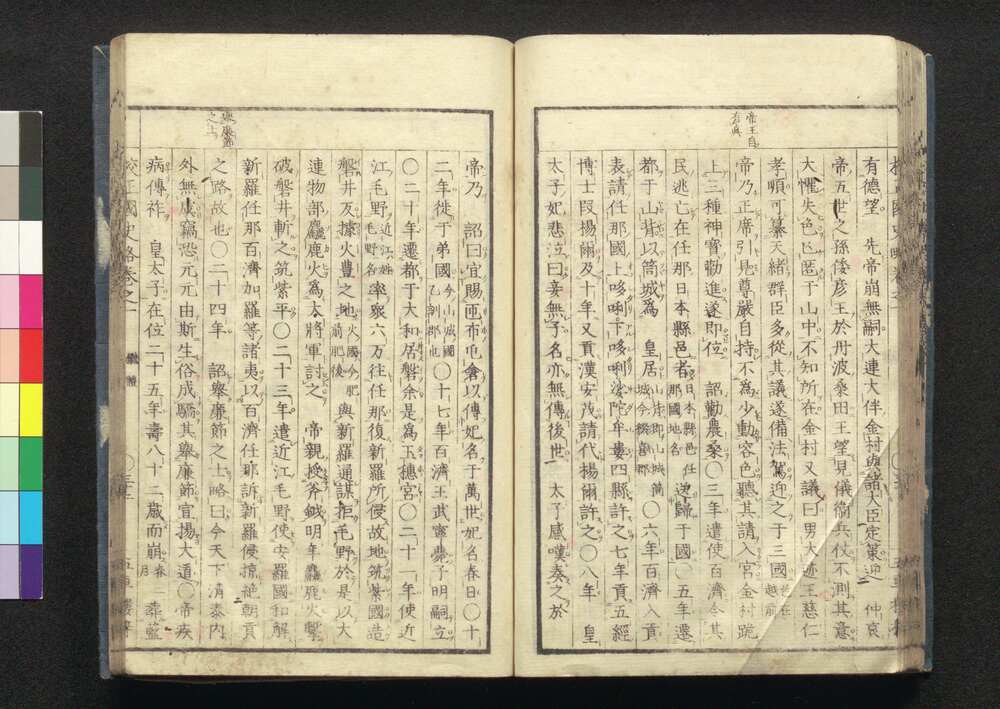 帝王自
有眞
有德望 先帝崩無嗣大連大伴金村與諸大臣定策迎 仲哀
帝五世之孫倭彦王於丹波桑田王望見儀衞兵仗不測其意
大懼失色遁匿于山中不知所在金村又議曰男大迹王慈仁
孝順可纂天緒群臣多從其議遂備法駕迎之于三國
帝乃正席引見尊嚴自持不爲少動容色聽其請入宮金村跪
上三種神寶勸進遂即位 詔勸農桑〇三年遣使百濟令其
民逃亡在任那日本縣邑者日本縣邑任那國地名迎歸于國〇五年遷
都于山背以筒城爲 皇居〇六年百濟入貢
表請任那國上哆唎下哆唎沙陀牟婁四縣許之七年貢五經
博士段揚爾及十年又貢漢安茂請代揚爾許之〇八年 皇
太子妃悲泣曰妾無子名亦無傳後世 太子感嘆奏之於
廉節
之士
帝乃 詔曰宜賜匝布屯倉以傳妃名于萬世妃名春日〇十
二年徙于弟國今山城國乙訓郡也〇十七年百濟王武寧薨子明嗣立
〇二十年遷都于大和居磐余是爲玉穗宮〇二十一年使近
江毛野近江姓毛野名率衆六万往任那復新羅所侵故地筑紫國造
磐井反據火豐之地火國今肥前肥後與新羅通謀拒毛野於是以大
連物部麤鹿火爲大將軍討之 帝親授斧鉞明年麤鹿火擊
破磐井斬之筑紫平〇二十三年遣近江毛野使安羅國和解
新羅任那百濟加羅等諸夷以百濟任那訴新羅侵掠絶朝貢
之路故也〇二十四年 詔擧廉節之士略曰今天下清泰内
外無虞竊恐元元由斯生俗成驕其擧廉節宣揚大道〇帝疾
病傳祚 皇太子在位二十五年壽八十二歳而崩 葬藍
校正國史略卷之一 繼體